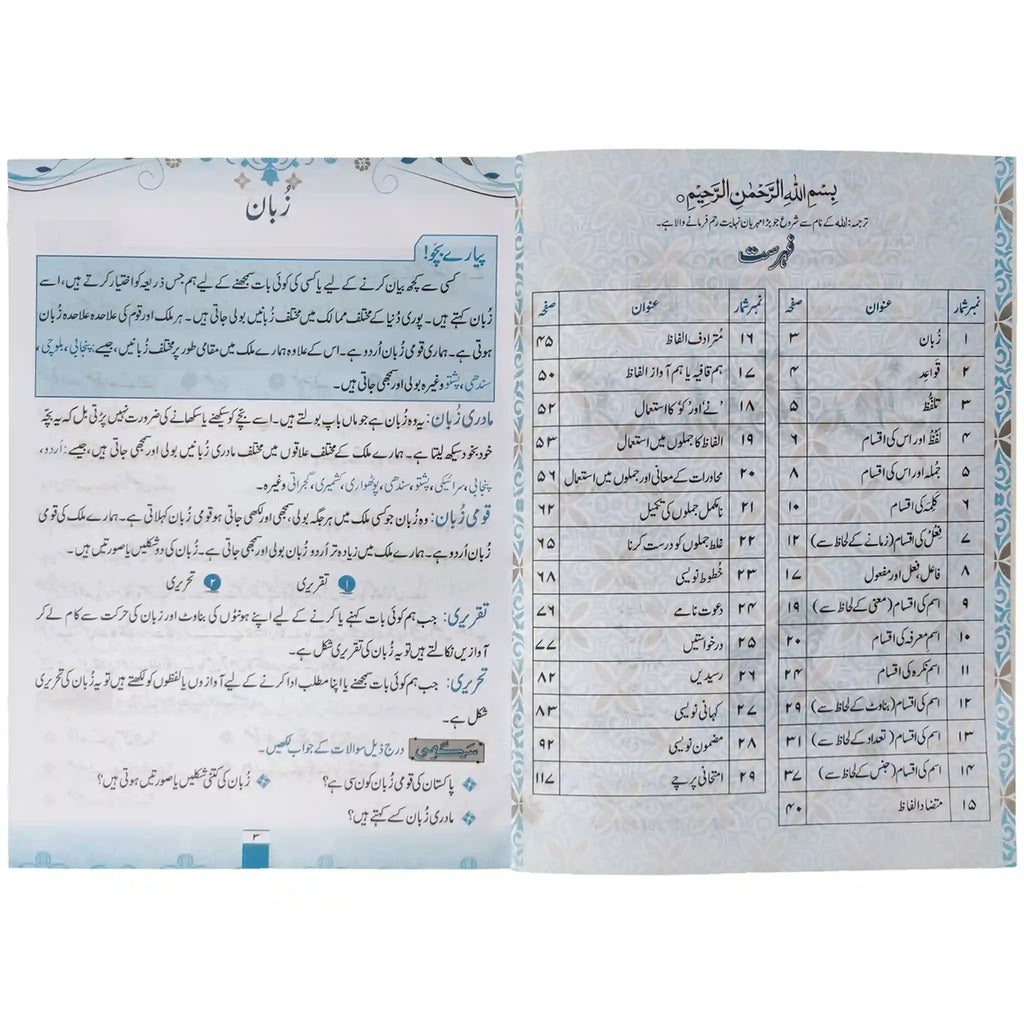 بِسْمِ اللهِ الرَّحْمٰنِ الرَّحِیْمِ ۝
ترجمہ: اللہ کے نام سے شروع جو بڑا مہربان نہایت رحم فرمانے والا ہے۔
فہرست
نمبر شمار عنوان صفحہ
۱ زُبان ۳
۲ قواعِد ۴
۳ تلفُّظ ۵
۴ لفظ اور اس کی اقسام ۶
۵ جُملہ اور اس کی اقسام ۸
۶ کلمِہ کی اقسام ۱۰
۷ فِعل کی اقسام (زمانے کے لحاظ سے) ۱۲
۸ فاعل، فعل اور مفعول ۱۷
۹ اسم کی اقسام (معنی کے لحاظ سے) ۱۹
۱۰ اسمِ معرفہ کی اقسام ۲۰
۱۱ اسمِ نکرہ کی اقسام ۲۴
۱۲ اسم کی اقسام (بناوٹ کے لحاظ سے) ۲۹
۱۳ اسم کی اقسام (تعداد کے لحاظ سے) ۳۱
۱۴ اسم کی اقسام (جنس کے لحاظ سے) ۳۷
۱۵ متضاد الفاظ ۴۰
نمبر شمار عنوان صفحہ
۱۶ مُترادف الفاظ ۴۵
۱۷ ہم قافیہ یا ہم آواز الفاظ ۵۰
۱۸ ’نے‘ اور ’کو‘ کا استعمال ۵۲
۱۹ الفاظ کا جملوں میں استعمال ۵۳
۲۰ محاورات کے معانی اور جملوں میں استعمال ۵۶
۲۱ نامکمل جملوں کی تکمیل ۶۲
۲۲ غلط جملوں کو درست کرنا ۶۵
۲۳ خُطوط نویسی ۶۸
۲۴ دعوت نامے ۷۶
۲۵ درخواستیں ۷۷
۲۶ رسیدیں ۸۲
۲۷ کہانی نویسی ۸۳
۲۸ مضمون نویسی ۹۲
۲۹ امتحانی پرچے ۱۱۷
زُبان
پیارے بچّو!
کسی سے کچھ بیان کرنے کے لیے یا کسی کی کوئی بات سمجھنے کے لیے ہم جس ذریعہ کو اختیار کرتے ہیں، اسے
زُبان کہتے ہیں۔ پوری دُنیا کے مختلف ممالک میں مختلف زُبانیں بولی جاتی ہیں۔ ہر ملک اور قوم کی علاحدہ علاحدہ زُبان
ہوتی ہے۔ ہماری قومی زُبان اُردو ہے۔ اس کے علاوہ ہمارے ملک میں مقامی طور پر مختلف زُبانیں، جیسے: پنجابی، بلوچی،
سندھی، پشتو وغیرہ بولی اور سمجھی جاتی ہیں۔
مادری زُبان: یہ وہ زُبان ہے جو ماں باپ بولتے ہیں۔ اسے بچے کو سیکھنے یا سکھانے کی ضرورت نہیں پڑتی بل کہ یہ بچہ
خود بخود سیکھ لیتا ہے۔ ہمارے ملک کے مختلف علاقوں میں مختلف مادری زُبانیں بولی اور سمجھی جاتی ہیں، جیسے: اُردو،
پنجابی، سرائیکی، پشتو، سندھی، پوٹھواری، کشمیری، گجراتی وغیرہ۔
قومی زُبان: وہ زُبان جو کسی ملک میں ہر جگہ بولی، سمجھی اور لکھی جاتی ہو قومی زُبان کہلاتی ہے۔ ہمارے ملک کی قومی
زُبان اُردو ہے۔ ہمارے ملک میں زیادہ تر اُردو زُبان بولی اور سمجھی جاتی ہے۔ زُبان کی دو شکلیں یا صورتیں ہیں۔
۱ تقریری ۲ تحریری
تقریری: جب ہم کوئی بات کہنے یا کرنے کے لیے اپنے ہونٹوں کی بناوٹ اور زبان کی حرکت سے کام لے کر
آوازیں نکالتے ہیں تو یہ زُبان کی تقریری شکل ہے۔
تحریری: جب ہم کوئی بات سمجھنے یا اپنا مطلب ادا کرنے کے لیے آوازوں یا لفظوں کو لکھتے ہیں تو یہ زُبان کی تحریری
شکل ہے۔
سرگرمی درج ذیل سوالات کے جواب لکھیں۔
پاکستان کی قومی زُبان کون سی ہے؟ زُبان کی کتنی شکلیں یا صورتیں ہوتی ہیں؟
مادری زُبان کسے کہتے ہیں؟
۳